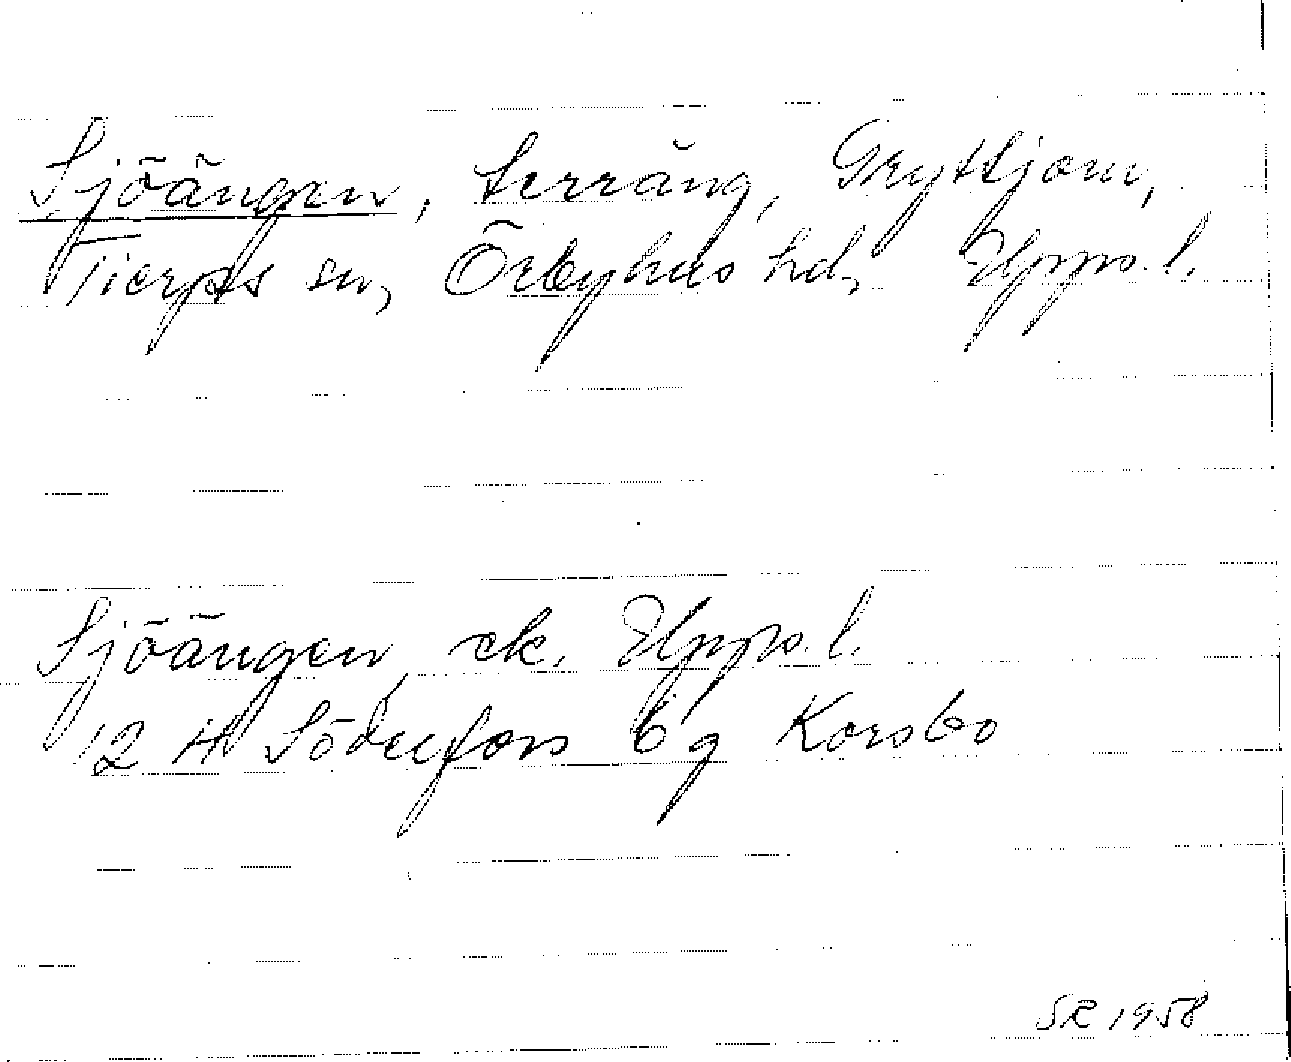 Sjöängen, terräng, Gryttjom,
Tierps sn, Örbyhus hd, Upps. l.
Sjöängen, ek. Upps. l.
12 H Söderfors 6 g Korsbo
SR 1958